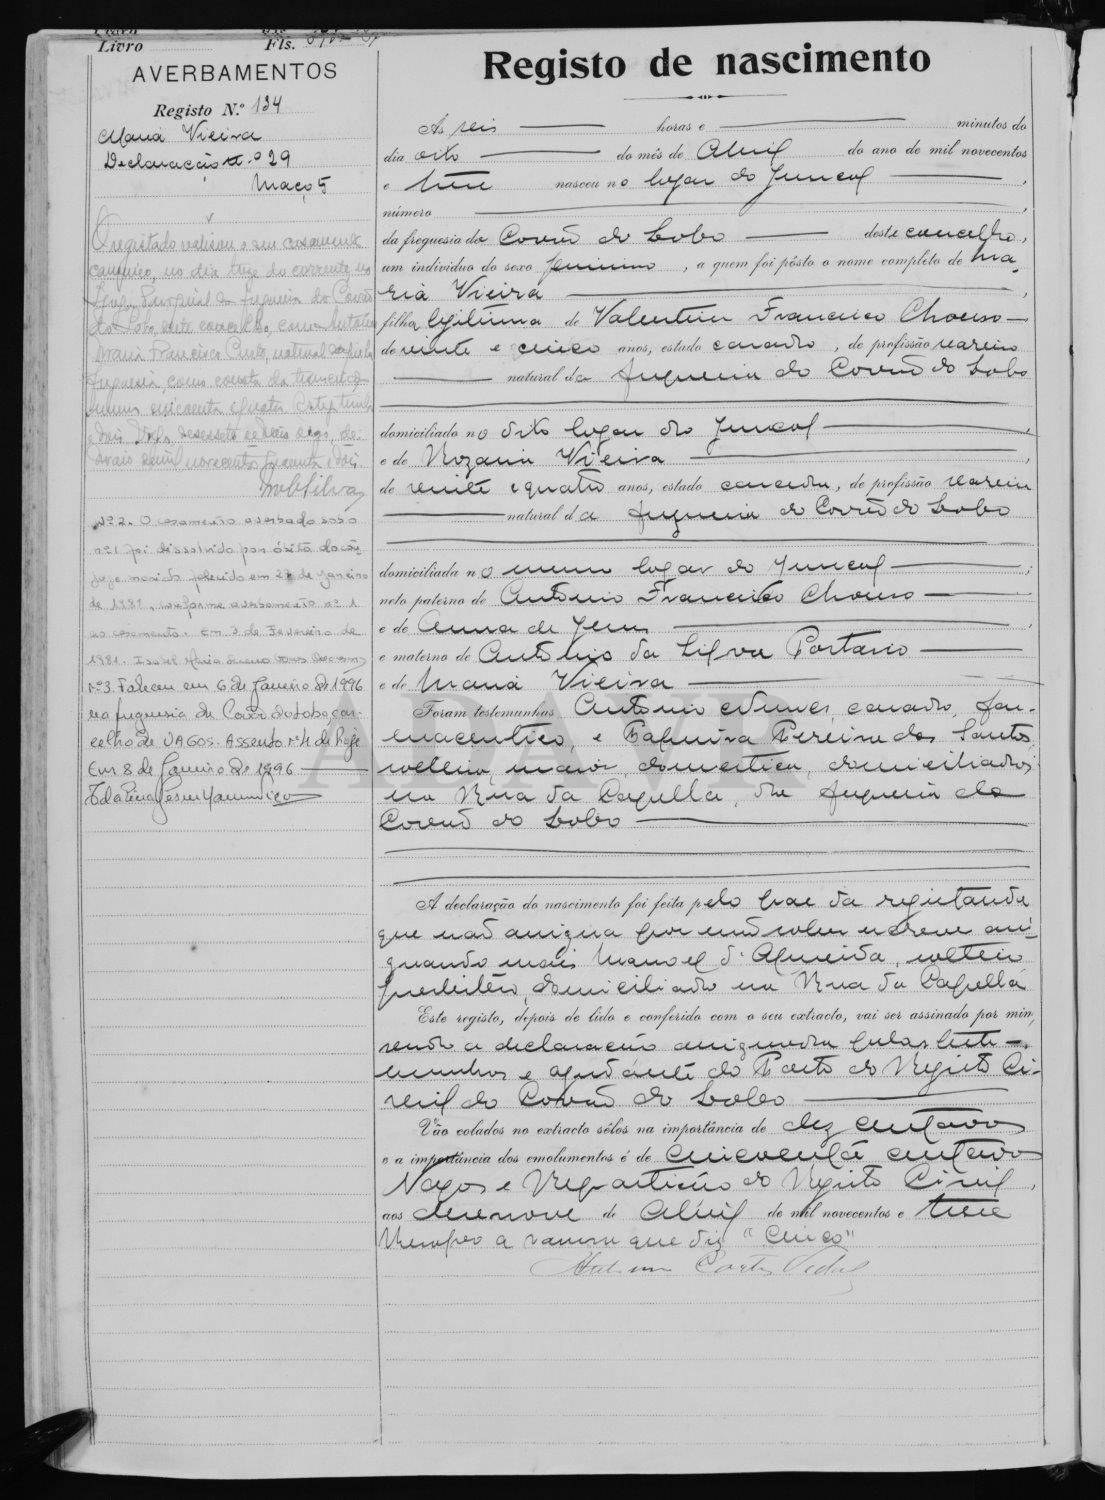 Livro Fls.
AVERBAMENTOS
Registo N.º 134
Maria Vieira
Declaração n.º 29
Maço 5
O registado realisou o seu casamento
canonico, no dia treze do corrente, na
Igreja Paroquial da freguesia do Covão
do Lobo, deste concelho, com António
Maria Francisco natural daquela
freguesia, como consta do
numero cincoenta e quatro
e dois Vagos, dezasseis de
Maio de mil novecentos quarenta e dois
Silva
Nº 2. O casamento averbado sob o
nº 1 foi dissolvido por óbito do côn-
juge marido falecido em 28 de Janeiro
de 1981, conforme averbamento nº 1
ao casamento. Em 3 de Fevereiro de
1981. Isabel Maria
Nº 3. Faleceu em 6 de Janeiro de 1996
na freguesia de Covão do Lobo, con-
celho de VAGOS. Assento nº 4 de hoje
Em 8 de Janeiro de 1996
Registo de nascimento
Ás seis horas e minutos do
dia oito do mês de Abril do ano de mil novecentos
e treze nasceu no logar do Juncal ,
número ,
da freguesia de Covão do Lobo deste concelho,
um individuo do sexo feminino, a quem foi pôsto o nome completo de Ma-
ria Vieira ,
filha legitima de Valentim Francisco Chouso
de vinte e cinco anos, estado casado, de profissão seareiro
natural da freguesia do Covão do Lobo
domiciliado no dito logar do Juncal ,
e de Rozaria Vieira ,
de vinte e quatro anos, estado casada, de profissão seareira
natural da freguesia do Covão do Lobo
domiciliada no mesmo logar do Juncal ;
neto paterno de Antonio Francisco Chouso
e de Anna de Jesus
e materno de Antonio da Silva Portario
e de Maria Vieira
Foram testemunhas Antonio Nunes, casado, far-
maceutico, e Palmira Pereira dos Santos,
solteira, maior, domestica, domiciliados
na Rua da Capella, da freguesia do
Covão do Lobo
A declaração do nascimento foi feita pelo pae da registanda
que não assigna por não saber escrever assi-
gnando mais Manoel d'Almeida, solteiro
presbitero, domiciliado na Rua da Capella
Este registo, depois de lido e conferido com o seu extracto, vai ser assinado por mim,
sendo a declaração assignada pelas teste-
munhas e ajudante do Posto do Registo Ci-
vil do Covão do Lobo
Vão colados no extracto sêlos na importância de dez centavos
e a importância dos emolumentos é de cincoenta centavos
Vagos e Repartição do Registo Civil,
aos dezenove de Abril de mil novecentos e treze
Resalvo a rasura que diz "cinco"
ADAVR